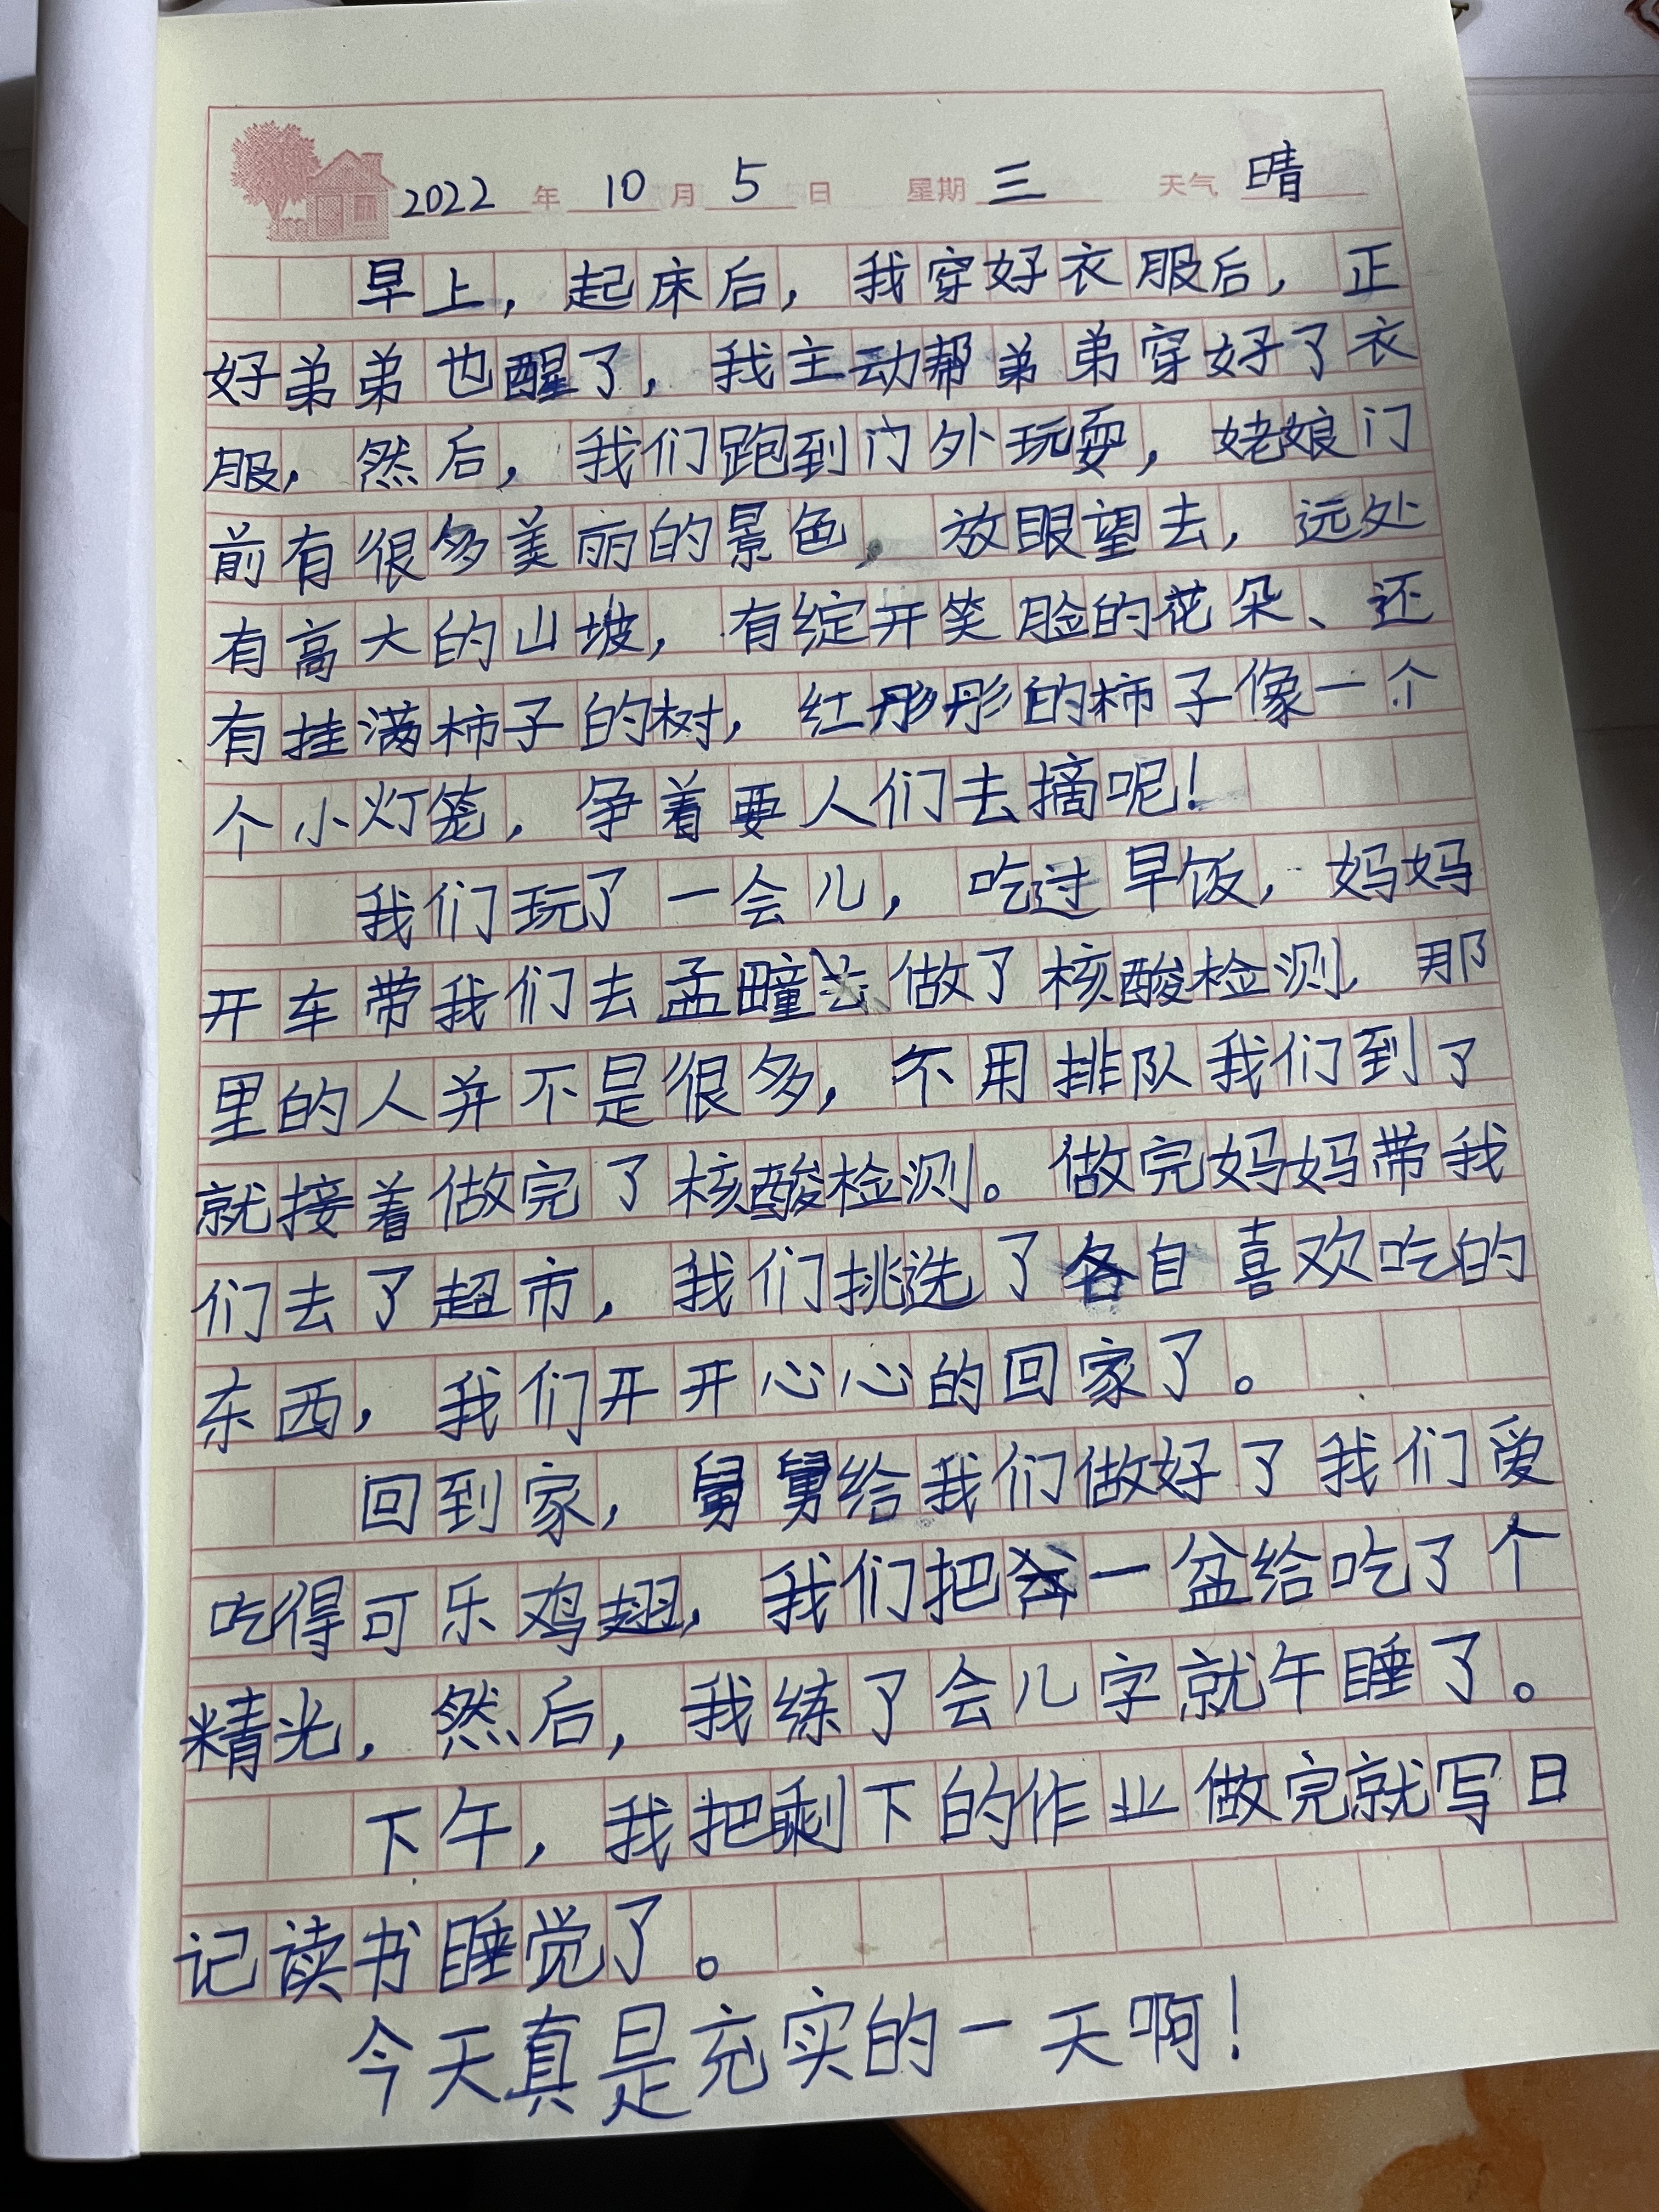 2022年10月5日 星期三 天气晴
早上，起床后，我穿好衣服后，正
好弟弟也醒了，我主动帮弟弟穿好了衣
服，然后，我们跑到门外玩耍，姥娘门
前有很多美丽的景色，放眼望去，远处
有高大的山坡，有绽开笑脸的花朵、还
有挂满柿子的树，红彤彤的柿子像一个
个小灯笼，争着要人们去摘呢！
我们玩了一会儿，吃过早饭，妈妈
开车带我们去孟疃做了核酸检测，那
里的人并不是很多，不用排队我们到了
就接着做完了核酸检测。做完妈妈带我
们去了超市，我们挑选了各自喜欢吃的
东西，我们开开心心的回家了。
回到家，舅舅给我们做好了我们爱
吃得可乐鸡翅，我们把一盆给吃了个
精光，然后，我练了会儿字就午睡了。
下午，我把剩下的作业做完就写日
记读书睡觉了。
今天真是充实的一天啊！